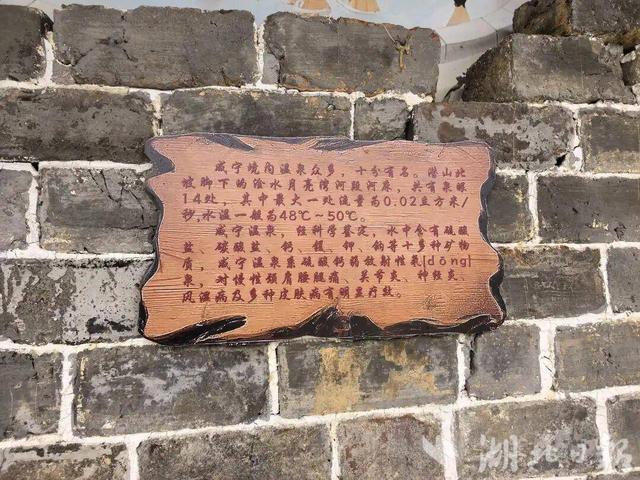 咸宁境内温泉众多，十分有名。潜山北
坡脚下的淦水月亮湾河段河床，共有泉眼
14处，其中最大一处流量为0.02立方米/
秒,水温一般为48℃～50℃。
咸宁温泉，经科学鉴定，水中含有硫酸
盐、碳酸盐、钙、镁、钾、钠等十多种矿物
质，咸宁温泉系硫酸钙弱放射性氡|dōng|
泉，对慢性颈肩腰腿痛、关节炎、神经炎、
风湿病及多种皮肤病有明显疗效。
湖北日报